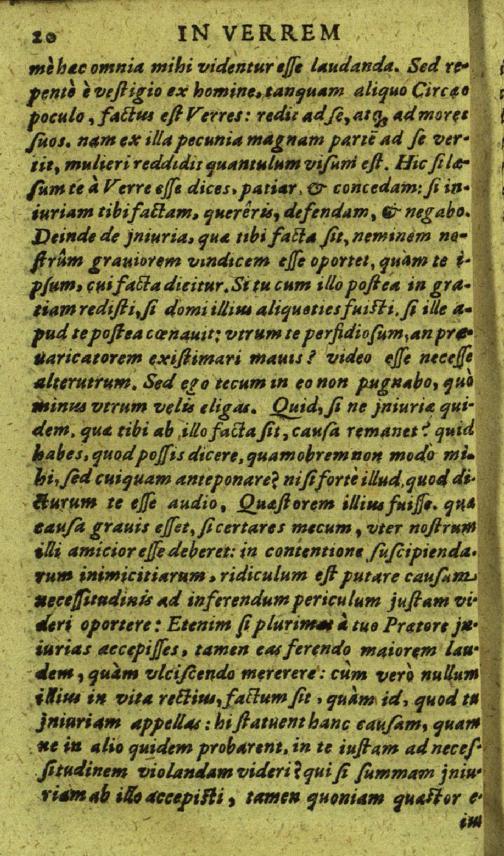 20 IN VERREM
mè hac omnia mihi videntur esse laudanda. Sed re-
pentè è vestigio ex homine, tanquam aliquo Circæo
poculo, factus est Verres: redit ad se, atq; ad mores
suos. nam ex illa pecunia magnam partē ad se ver-
tit, mulieri reddidit quantulum visum est. Hic si læ-
sum te à Verre esse dices, patiar, & concedam: si in-
iuriam tibi factam, querêris, defendam, & negabo.
Deinde de jniuria, quæ tibi facta sit, neminem no-
strûm grauiorem vindicem esse oportet, quàm te i-
psum, cui facta dicitur. Si tu cum illo postea in gra-
tiam redisti, si domi illius aliquoties fuisti, si ille a-
pud te postea cœnauit: vtrum te perfidiosum, an præ-
uaricatorem existimari mauis? video esse necesse
alterutrum. Sed ego tecum in eo non pugnabo, quò
minus vtrum velis eligas. Quid, si ne jniuriæ qui-
dem, quæ tibi ab illo facta sit, causa remanet? quid
habes, quod possis dicere, quamobrem non modo mi-
hi, sed cuiquam anteponare? nisi fortè illud, quod di-
cturum te esse audio, Quæstorem illius fuisse. qua
causa grauis esset, si certares mecum, vter nostrum
illi amicior esse deberet: in contentione suscipienda-
rum inimicitiarum, ridiculum est putare causam
necessitudinis ad inferendum periculum justam vi-
deri oportere: Etenim si plurimas à tuo Prætore jn-
iurias accepisses, tamen eas ferendo maiorem lau-
dem, quàm vlciscendo mererere: cùm verò nullum
illius in vita rectius, factum sit, quàm id, quod tu
jniuriam appellas: hi statuent hanc causam, quam
ne in alio quidem probarent, in te iustam ad neces-
situdinem violandam videri? qui si summam jniu-
riam ab illo accepisti, tamen quoniam quæstor e-
ius